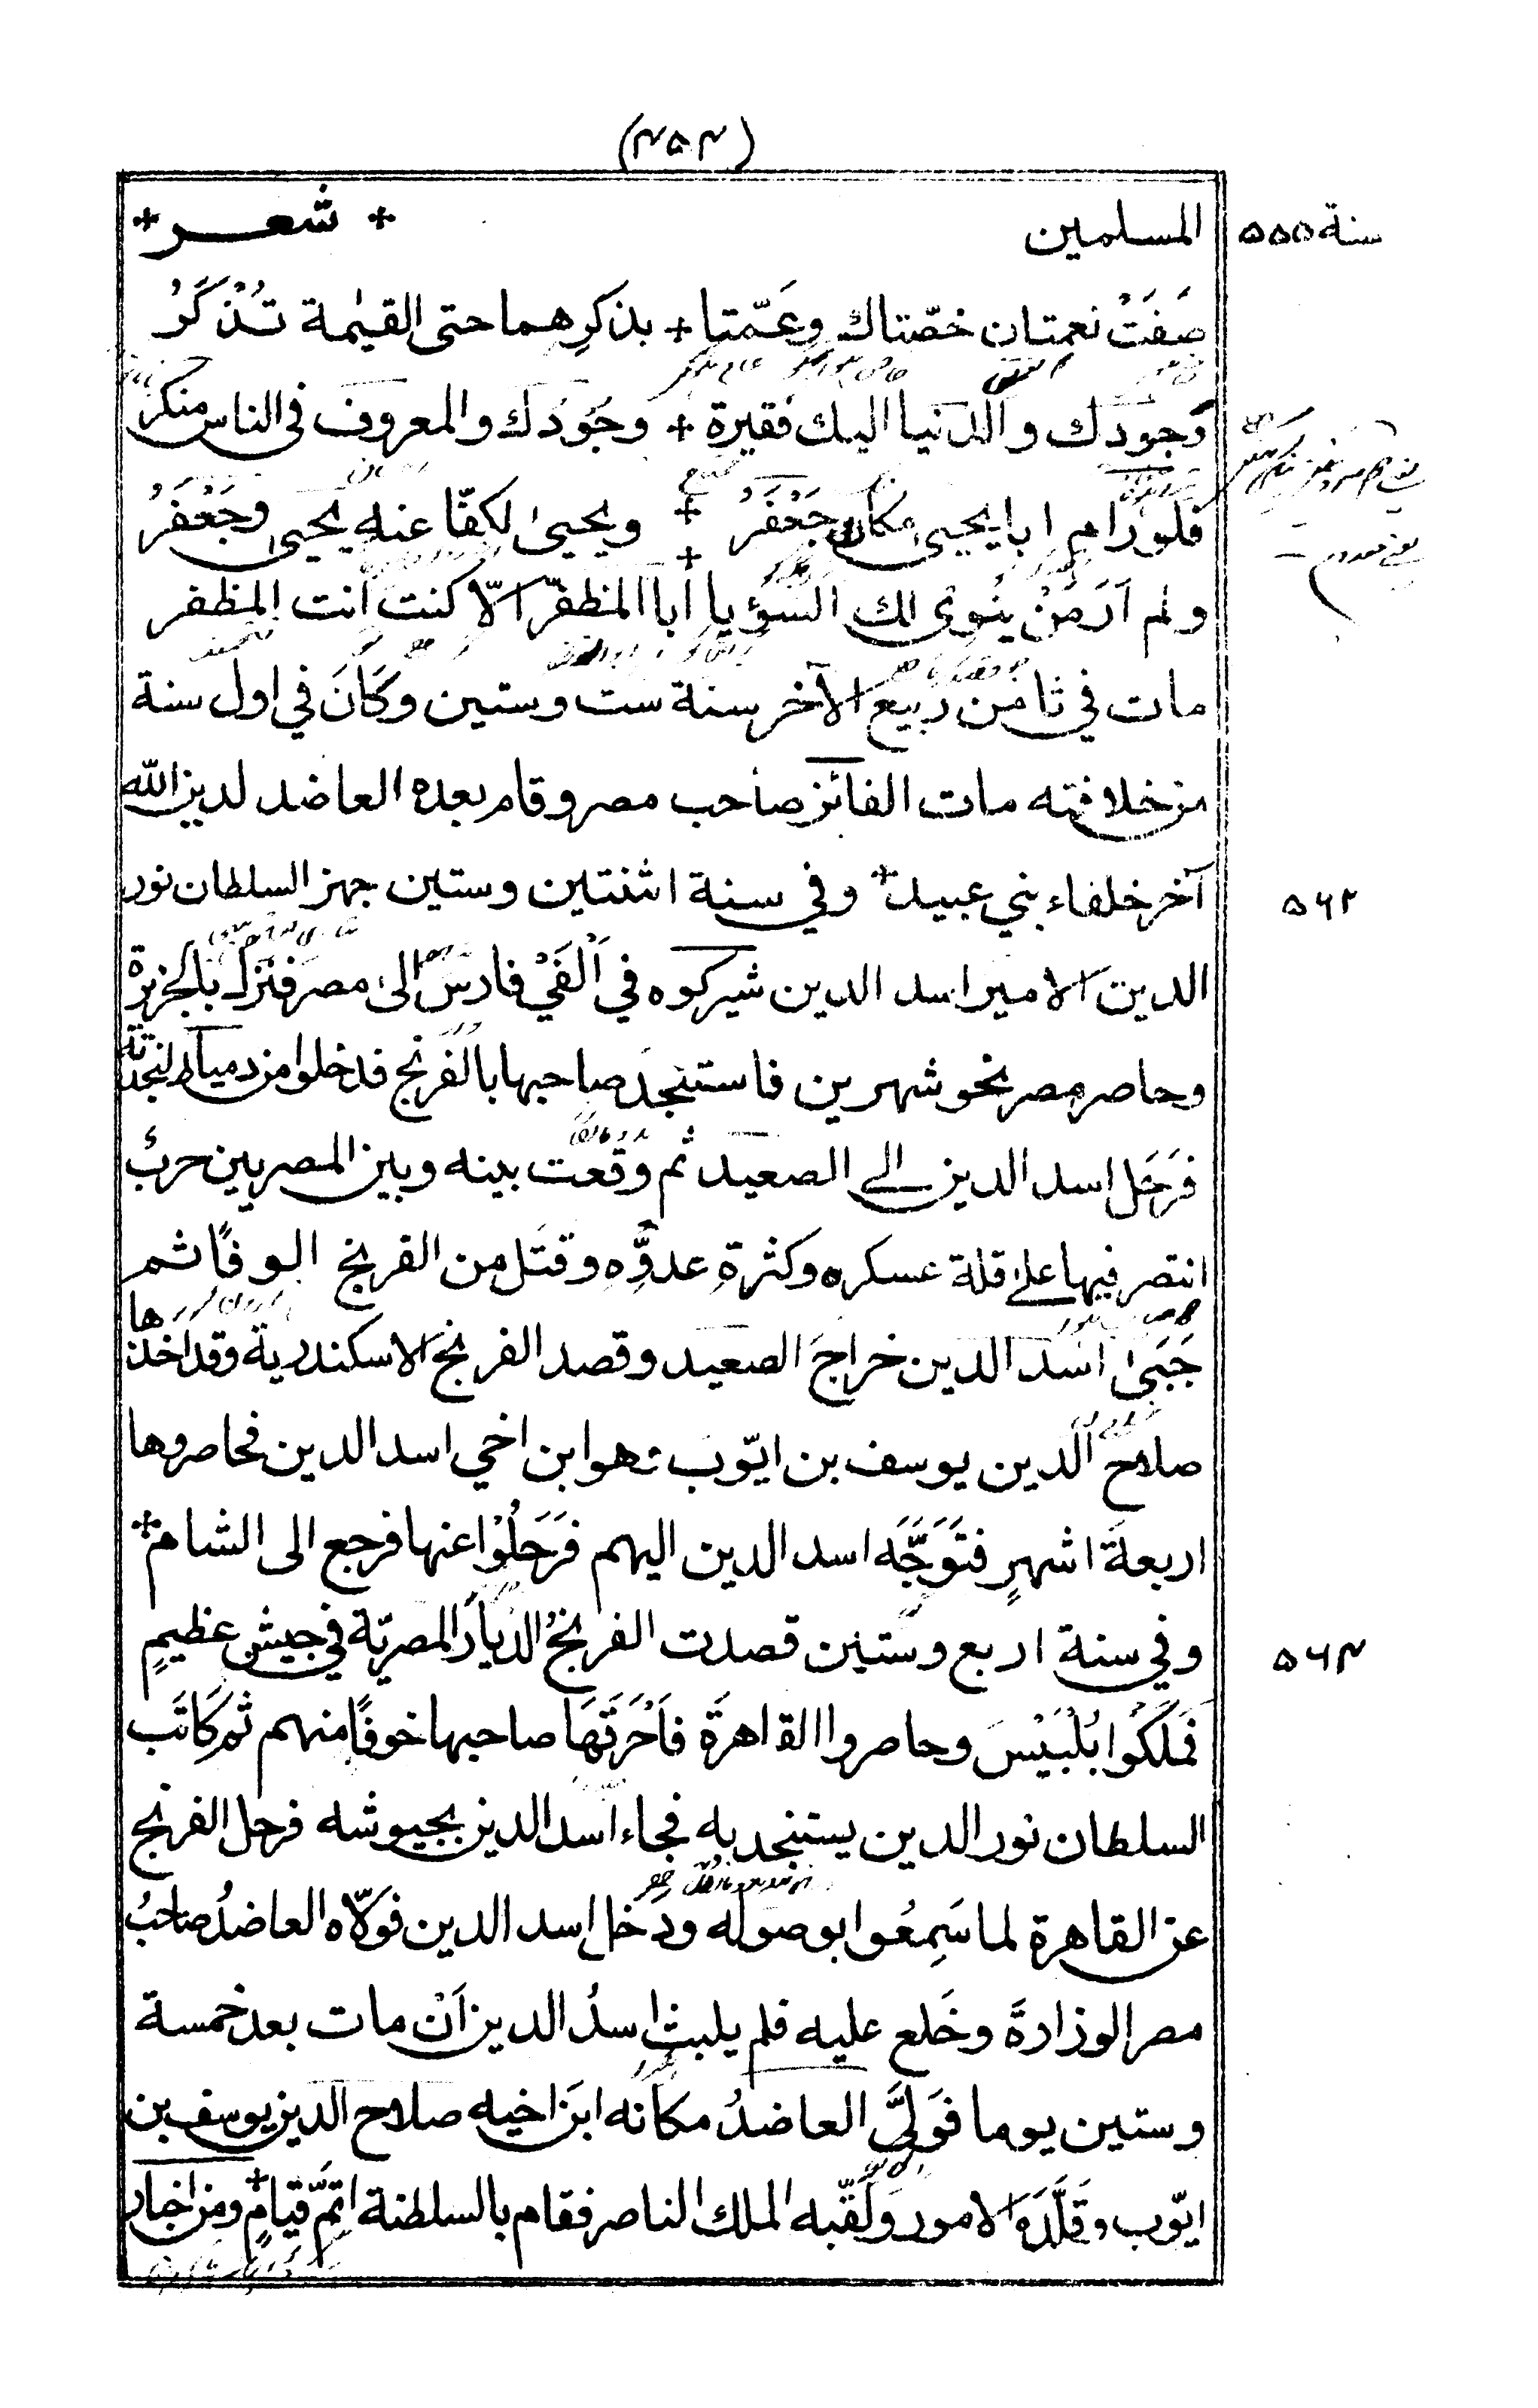 (۴۵۴)
سنة ۵۵۵
المسلمين + شعر +
صَفَتْ نعمتان خصّتاك وعَمّتا + بذكرِهما حتى القيٰمة تُذْكَرُ
وجودك والدنيا اليك فقيرة + وجُودك والمعروف فى الناس منكر
فلو رام ابا يحيى مكانك جَعْفَرُ + ويحيىٰ لكفّا عنه يحيى وجَعْفَرُ
ولم اَرَ مَنْ ينوى لك السؤ يا ابا المظفّر + الّا كنت انت المظفر
مات في ثامن ربيع الآخر سنة ست وستين وكَانَ في اول سنة
من خلافته مات الفائز صاحب مصر وقام بعده العاضد لدين الله
آخر خلفاء بني عبيد + وفي سنة اثنتين وستين جهز السلطان نور
۵۶۲
الدين الامير اسد الدين شيركوه في اَلْفَيْ فارس الى مصر فنزل بالجزيرة
وحاصر مصر نحو شهرين فاستنجدَ صاحبها بالفرنج فدخلوا من دمياط لنجدته
فرَحَل اسد الدين الى الصعيد ثم وقعت بينه وبين المصريين حربٌ
انتصر فيها على قلة عسكره وكثرةِ عدوِّهِ وقتَل من الفرنج الوفًا ثم
جَبَىٰ اسد الدين خراجَ الصعيد وقصد الفرنج الاسكندرية وقد اخذها
صلاح الدين يوسف بن ايّوب وهو ابن اخي اسد الدين فحاصروها
اربعةَ اشهرٍ فتَوَجَّهَ اسد الدين اليهم فرَحَلُوْا عنها فرجع الى الشام +
وفي سنة اربع وستين قصدت الفرنجُ الديارَ المصريّة في جيشٍ عظيمٍ
۵۶۴
فمَلَكُوْا بُلْبَيْسَ وحاصروا القاهرةَ فاَحْرَقَهَا صاحبها خوفًا منهم ثم كَاتَب
السلطان نور الدين يستنجد به فجاء اسد الدين بجيوشه فرحل الفرنج
عن القاهرة لما سَمِعُوا بوصوله ودخل اسد الدين فولّاه العاضدُ صاحبُ
مصر الوزارةَ وخَلع عليه فلم يلبث اسدُ الدين اَنْ مات بعد خمسة
وستين يوما فوَلَّى العاضدُ مكانه ابنَ اخيه صلاح الدين يوسف بن
ايّوب وقَلَّدَهَ الامور ولَقّبه الملك الناصر فقام بالسلطنة اتمَّ قيامٍ + ومن اخبار